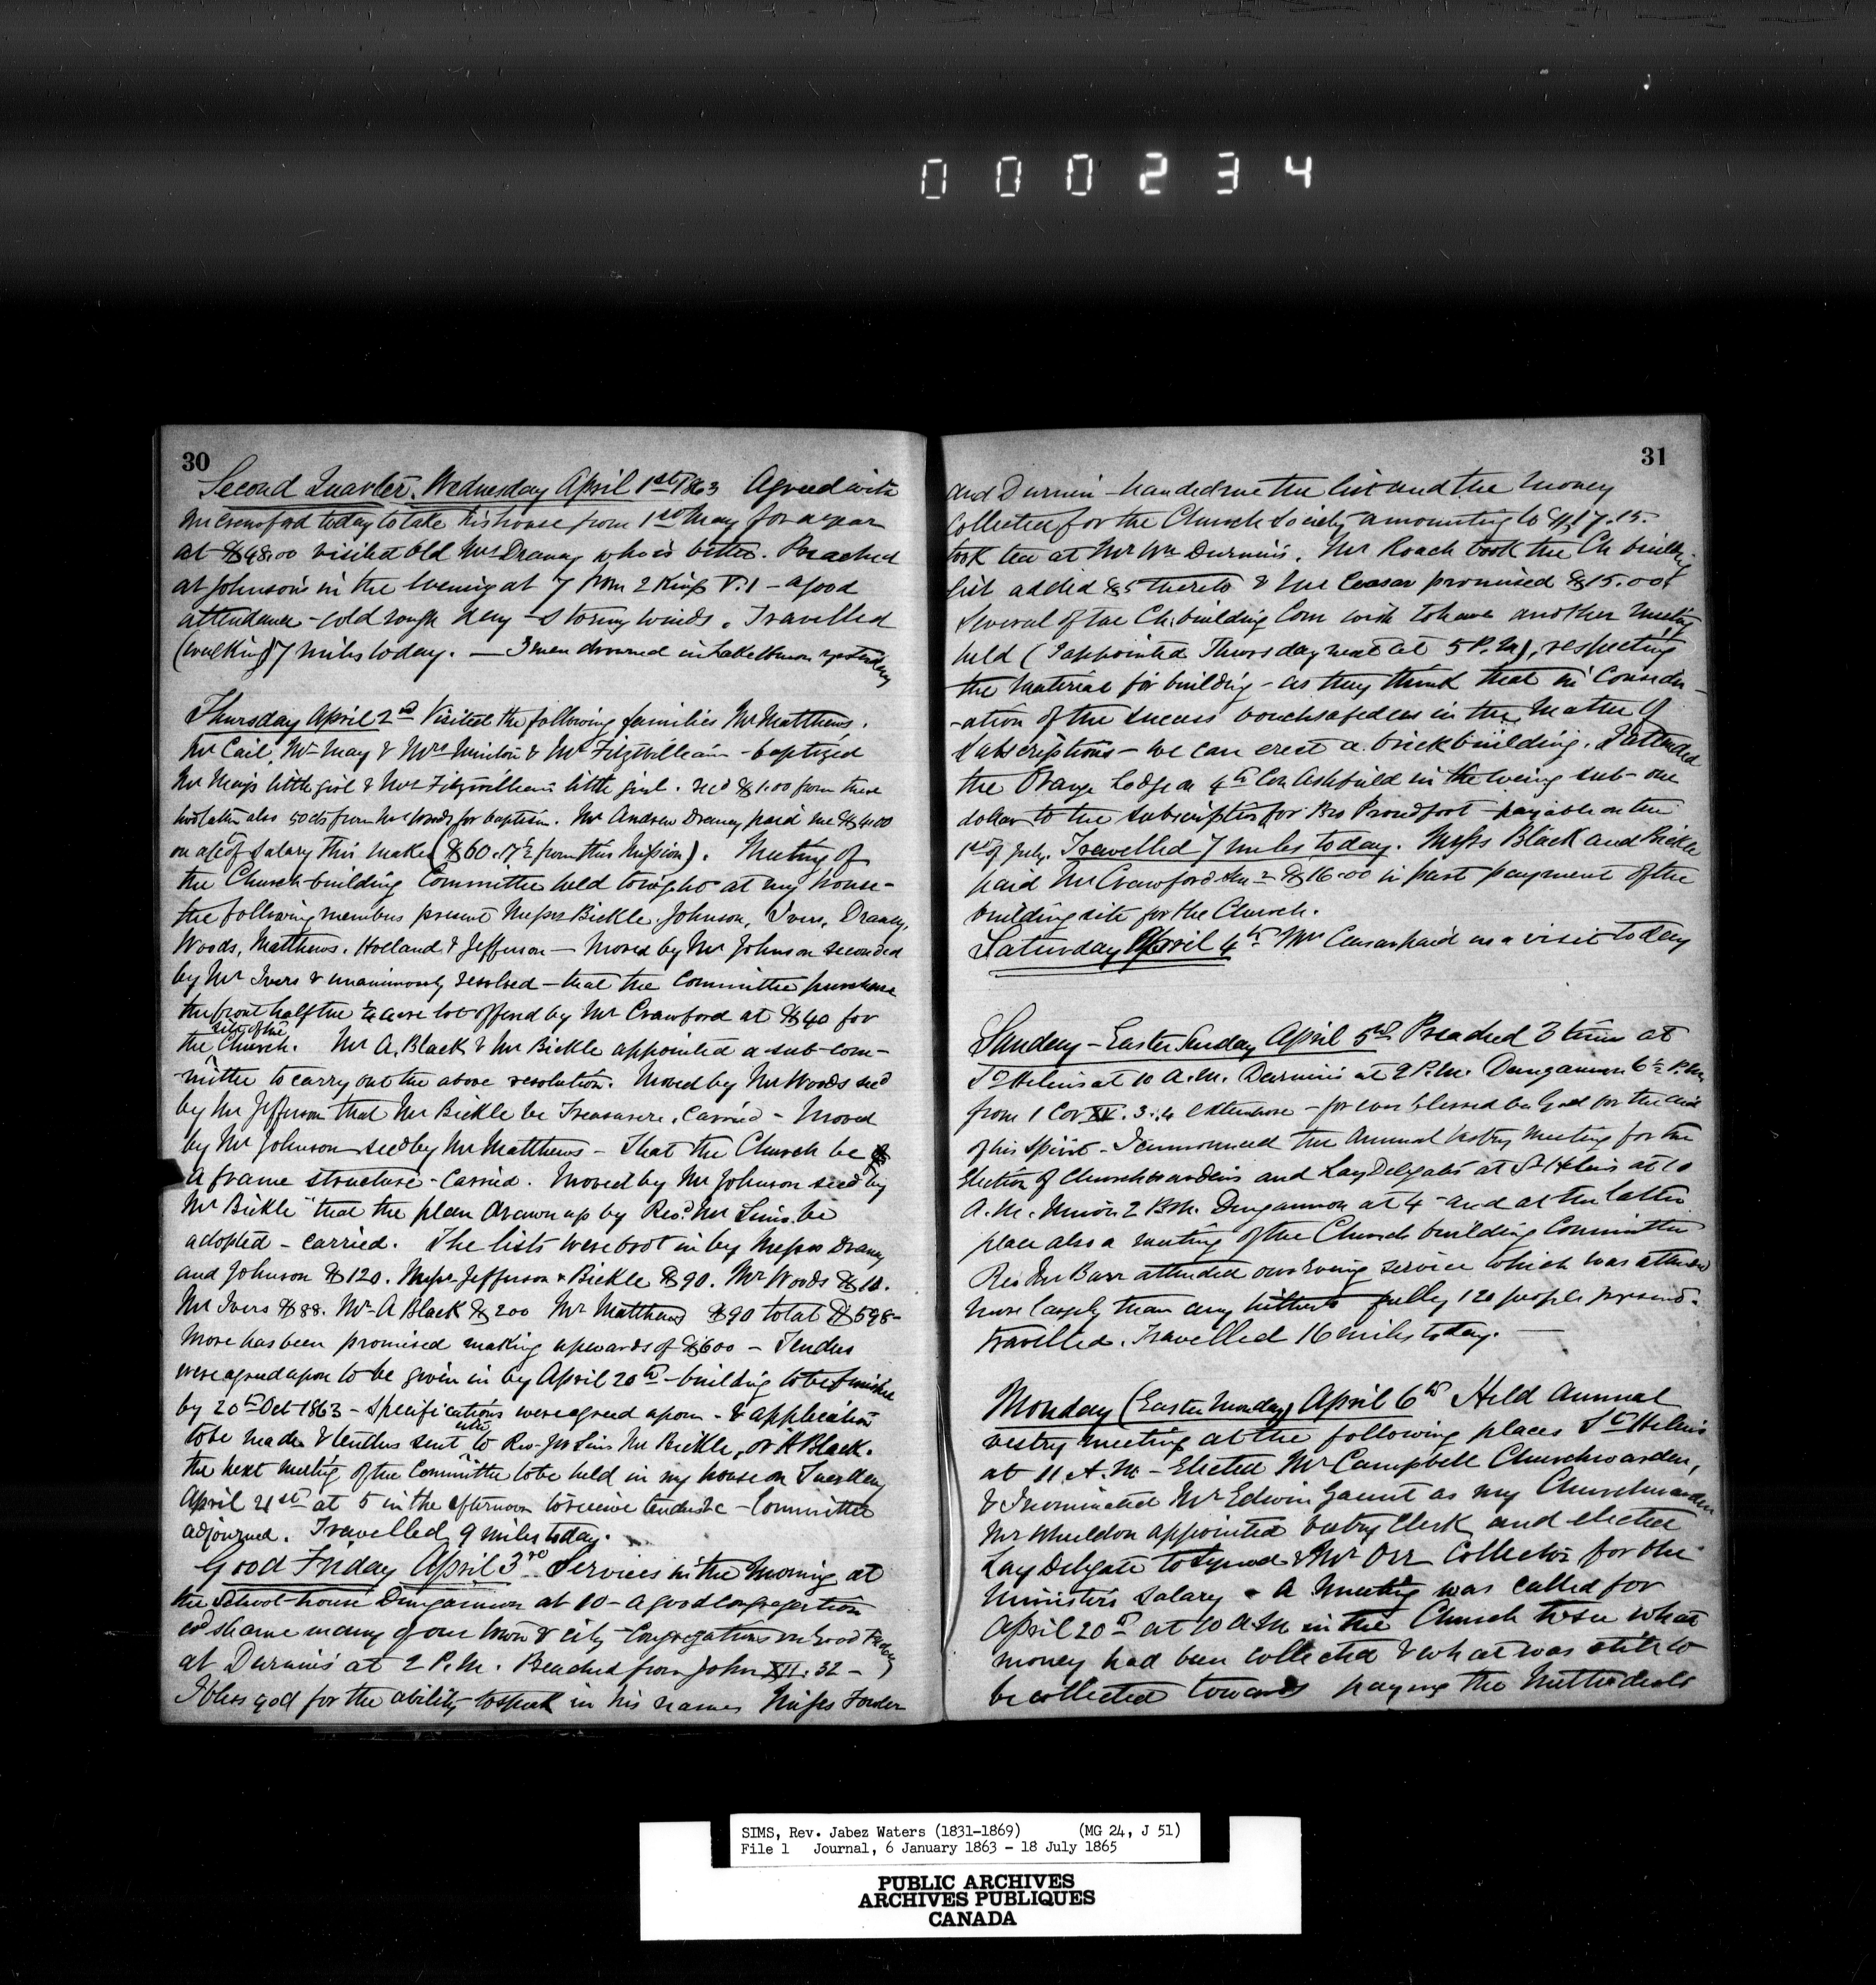 000234
30
Second Quarter. Wednesday April 1st 1863 Agreed with
Mr Crawford today to take his house from 1st May for a year
at $48.00 visited old Mrs Draney who is better. Preached
at Johnson's in the Evening at 7 from 2 Kings V. 1 - a good
attendance - cold rough day - stormy winds. Travelled
(walking) 7 miles today. — 3 men drowned in Lake Huron yesterday
Thursday April 2nd Visited the following families Mr Matthews.
Mr Cail, Mr May & Mrs & Mr Fitzwilliam - baptized
Mr May's little girl & Mrs Fitzwilliam's little girl. rec'd $1.00 from these
two latter also 50cts from Mrs Woods for baptism. Mr Andrew Draney paid me $4.00
on a/c of Salary this makes ($60.17½ from this Mission). Meeting of
the Church-building Committee held tonight at my house -
the following members present Messrs Bickle, Johnson, Ivers, Draney,
Woods, Matthews, Holland & Jefferson — Moved by Mr Johnson seconded
by Mr Ivers & unanimously resolved - that the Committee purchase
the front half the ½ acre lot offered by Mr Crawford at $40 for
site of the
the Church. Mr A. Black & Mr Bickle appointed a sub-com-
-mittee to carry out the above resolution. Moved by Mr Woods sec'd
by Mr Jefferson that Mr Bickle be Treasurer, Carried - Moved
by Mr Johnson sec'd by Mr Matthews - That the Church be
a frame structure - Carried. Moved by Mr Johnson sec'd by
Mr Bickle "that the plan drawn up by Revd. Mr Sims be
adopted - carried. The lists were brot in by Messrs Draney
and Johnson $120. Messrs Jefferson & Bickle $90. Mr Woods $10.
Mr Ivers $88. Mr A Black $200 Mr Matthews $90 total $598-
More has been promised making upwards of $600 - Tenders
were agreed upon to be given in by April 20th - building to be finished
by 20th Oct 1863 - Specifications were agreed upon - & application
to be made & tenders sent to Rev. Mr Sims Mr Bickle, or A Black.
the next meeting of the Committee to be held in my house on Tuesday
April 21st at 5 in the afternoon to receive tenders &c - Committee
adjourned. Travelled 9 miles today.
Good Friday April 3rd. Services in the Morning at
the School-house Dungannon at 10 - a good congregation
wd shame many of our town & city - Congregations on Good Friday
at Durnin's at 2 P.M. Preached from John XII. 32 -
I bless god for the ability to speak in his name Misses
31
and Durnin - handed me the list and the money
Collected for the Church Society amounting to $17.15.
took tea at Mr Wm Durnin's. Mr Roach took the Ch. building
list added $5 thereto & Mr Ceasar promised $15.00
Several of the Ch. building Com wish to have another meeting
held (I appointed Thursday next at 5 P.M), respecting
the Material for building - as they think that in Consider-
-ation of the success vouchsafed us in the Matter of
Subscriptions - we can erect a brick building. I attended
the Orange Lodge on 4th Con Ashfield in the Evening sub- one
dollar to the subscription for Bro Proudfoot - payable on the
1st of July. Travelled 7 miles today. Messrs Black and Bickle
paid Mr Crawford $16.00 in part payment of the
building site for the Church.
Saturday April 4th Mr Ceasar paid us a visit today
Sunday - Easter Sunday April 5th Preached 3 times at
St Helens at 10 A.M. Durnin's at 2 P.M. Dungannon 6½ P.M
from 1 Cor XV. 3.4 extempore - for ever blessed be God for the aid
of his Spirit - I announced the Annual Vestry Meeting for the
Election of Churchwardens and Lay Delegates at St Helens at 10
A.M. 2 P.M. Dungannon at 4 - and at the latter
place also a meeting of the Church building Committee
Rev Mr Barr attended our Evening service which was attended
more largely than any hitherto fully 120 people present.
travelled. Travelled 16 miles today. —
Monday (Easter Monday) April 6th Held Annual
vestry meeting at the following places St Helens
at 11 A.M - Elected Mr Campbell Churchwarden,
& I nominated Mr Edwin Gaunt as my Churchwarden
Mr Wheeldon appointed Vestry Clerk and elected
Lay Delegate to Synod & Mr Orr Collector for the
Ministers Salary & A Meeting was called for
April 20th at 10 A.M in the Church to see what
money had been collected & what was still to
be collected towards paying the Methodists
SIMS, Rev. Jabez Waters (1831-1869) (MG 24, J 51)
File 1 Journal, 6 January 1863 - 18 July 1865
PUBLIC ARCHIVES
ARCHIVES PUBLIQUES
CANADA